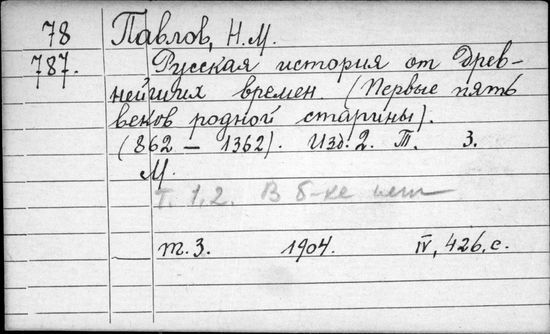 78 Павлов, Н.М.
787. Русская история от древ-
нейших времен (Первые пять
веков родной старины).
(862 – 1362). Изд. 2. Т. 3.
М.
Т. 1, 2. В б-ке нет
т. 3. 1904. IV, 426, с.